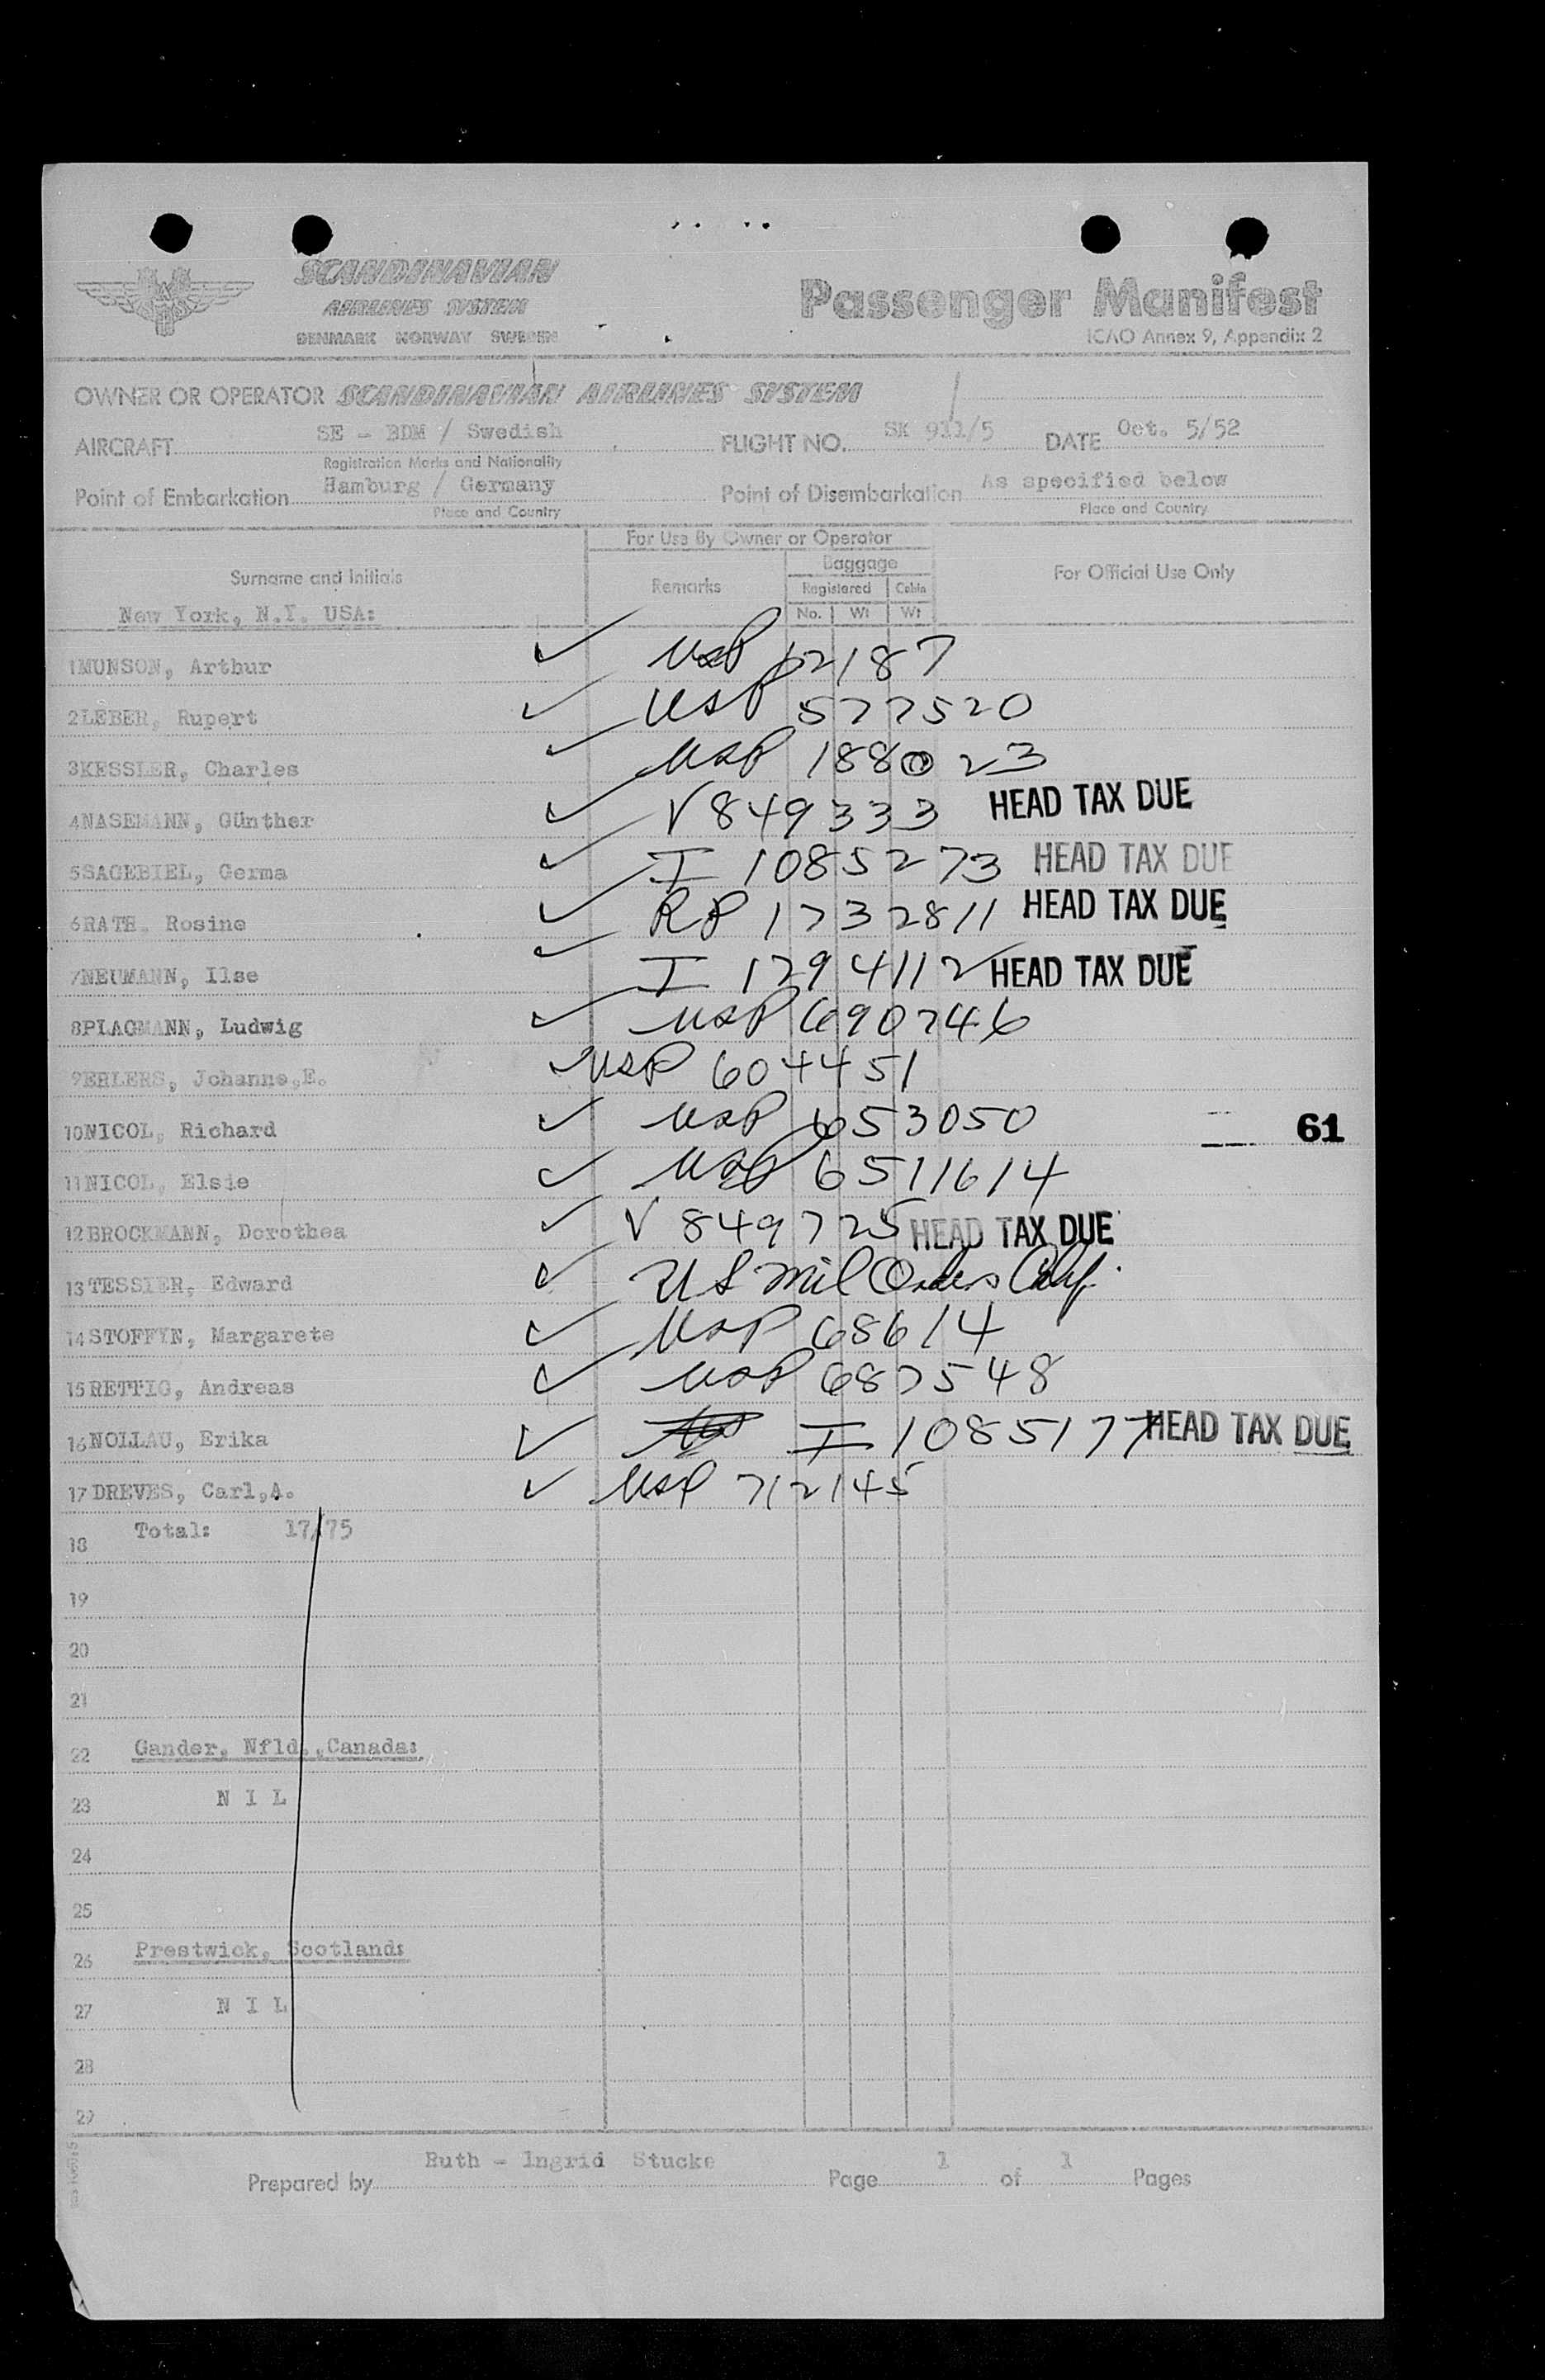 SCANDINAVIAN
AIRLINES SYSTEM
DENMARK NORWAY SWEDEN
Passenger Manifest
ICAO Annex 9, Appendix 2
OWNER OR OPERATOR SCANDINAVIAN AIRLINES SYSTEM
AIRCRAFT SE - BDM / Swedish FLIGHT NO. SK 911/5 DATE Oct. 5/52
Registration Marks and Nationality
Point of Embarkation Hamburg / Germany Point of Disembarkation As specified below
Place and Country Place and Country
For Use By Owner or Operator
Surname and Initials Remarks Baggage For Official Use Only
Registered Cabin
No. Wt Wt
New York, N.Y. USA:
1 MUNSON, Arthur ✓ USP 12187
2 LEBER, Rupert ✓ USP 577520
3 KESSLER, Charles ✓ USP 188023
4 NASEMANN, Günther ✓ V 849333 HEAD TAX DUE
5 SAGEBIEL, Germa ✓ I 1085273 HEAD TAX DUE
6 RATH. Rosine ✓ RP 1732811 HEAD TAX DUE
7 NEUMANN, Ilse ✓ I 1294112 HEAD TAX DUE
8 PLAGMANN, Ludwig ✓ USP 690746
9 EHLERS, Johanne,E. ✓ USP 604451
10 NICOL, Richard ✓ USP 653050 61
11 NICOL, Elsie ✓ USP 6511614
12 BROCKMANN, Dorothea ✓ V 849725 HEAD TAX DUE
13 TESSIER, Edward ✓ US Mil Orders
14 STOFFYN, Margarete ✓ USP 68614
15 RETTIG, Andreas ✓ USP 687548
16 NOLLAU, Erika ✓ I 1085177 HEAD TAX DUE
17 DREVES, Carl,A. ✓ USP 712145
18 Total: 17/75
19
20
21
22 Gander, Nfld.,Canada:
23 N I L
24
25
26 Prestwick, Scotland:
27 N I L
28
29
Prepared by Ruth - Ingrid Stucke Page 1 of 1 Pages